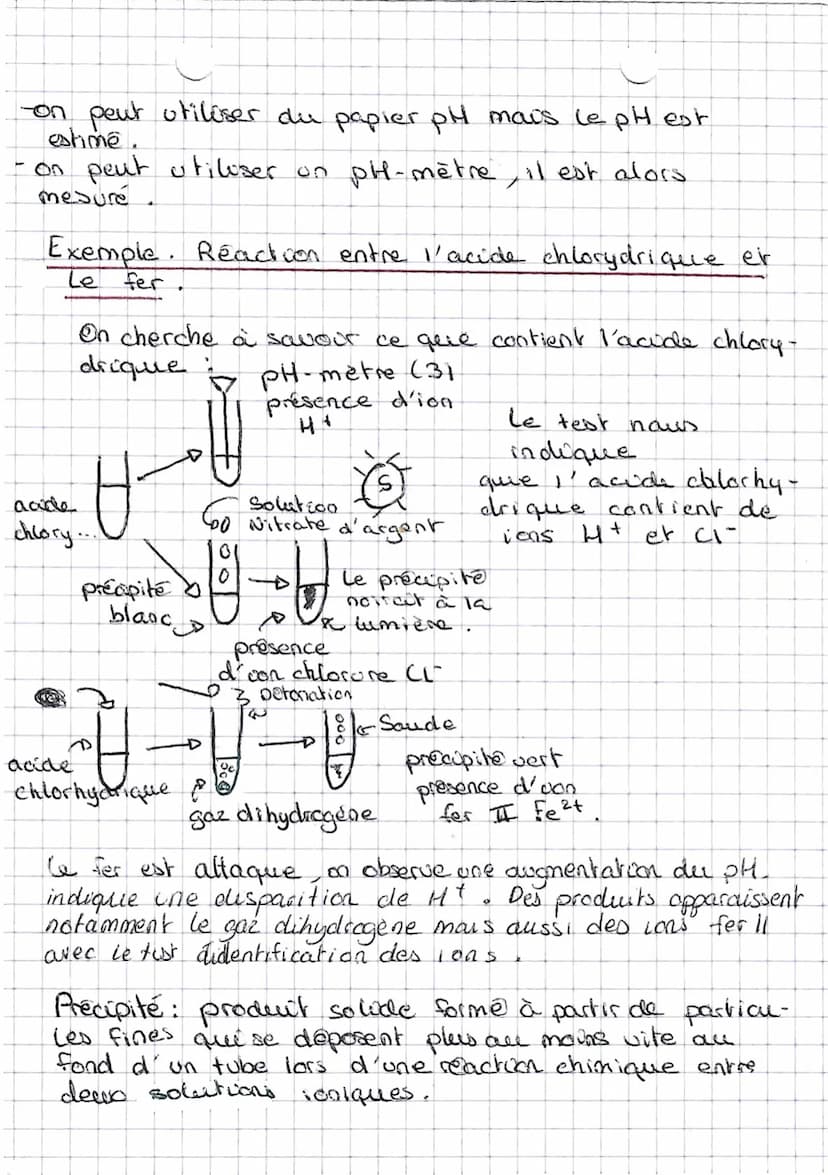 -on peut utiliser du papier pH mais le pH est
estimé.
- on peut utiliser un pH-mètre, il est alors
mesuré.
Exemple. Réaction entre l'acide chlorydrique et
le fer.
On cherche à savoir ce que contient l'acide chlory-
drique :
pH-mètre (3)
présence d'ion
H+
Le test nous
indique
que l'acide chlorhy-
drique contient de
ions H+ et Cl-
acide
chlory...
S
Solution
Nitrate d'argent
précipité
blanc
Le précipité
noircit à la
lumière.
présence
d'ion chlorure Cl-
Détonation
acide
chlorhydrique
gaz dihydrogène
Soude
précipité vert
présence d'ion
fer II Fe2+.
Le fer est attaque, on observe une augmentation du pH.
indique une disparition de H+. Des produits apparaissent
notamment le gaz dihydrogène mais aussi des ions fer II
avec le test d'identification des ions.
Précipité : produit solide formé à partir de particu-
les fines qui se déposent plus au moins vite au
fond d'un tube lors d'une réaction chimique entre
deux solutions ioniques.